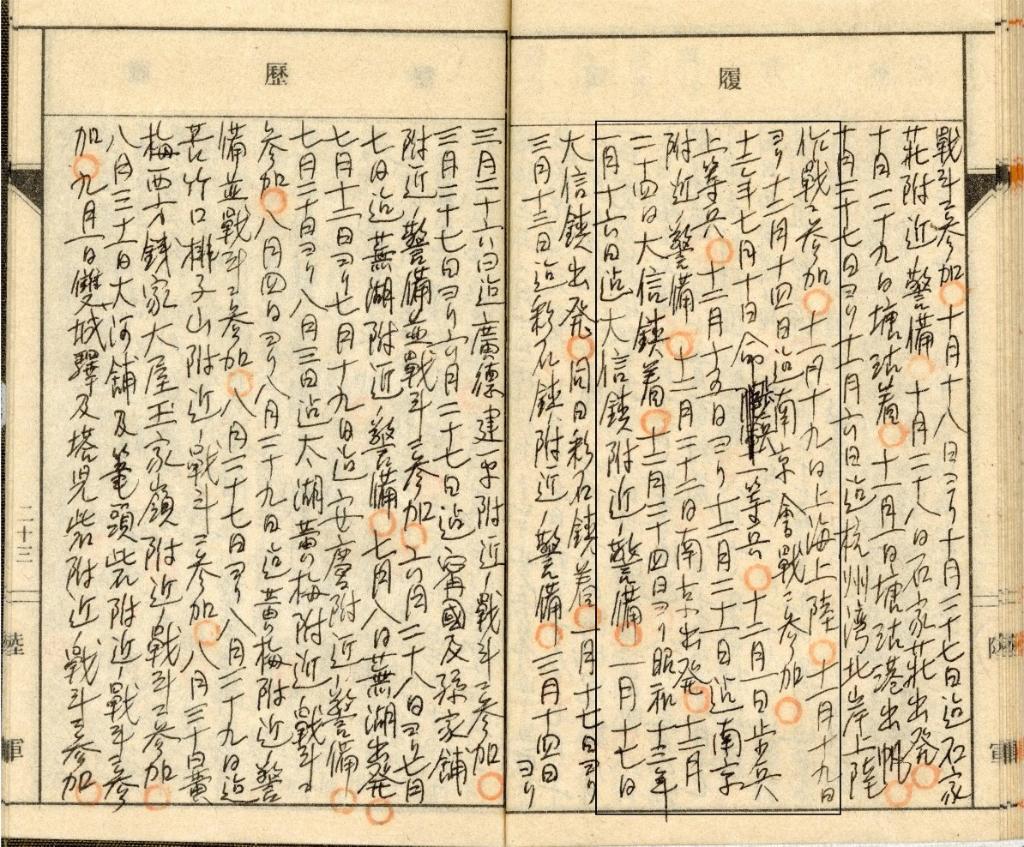 履
戰斗ニ参加十月十八日ヨリ十月二十七日迠石家
莊附近ノ警備十月二十八日石家莊出発
十月二十九日塘沽着十一月一日塘沽港出帆
十月二十七日ヨリ十一月六日迠杭州湾北岸上陸
作戰ニ参加十一月十九日上海上陸十一月十九日
ヨリ十二月十四日迠南京会戰ニ参加
十二年七月十日命一等兵十二月一日歩兵
上等兵十二月十五日ヨリ十二月二十一日迠南京
附近ノ警備十二月二十二日南京出発十二月
二十四日大信鎮着十二月二十四日ヨリ昭和十三年
一月十六日迠大信鎮附近ノ警備一月十七日
大信鎮出発同日彩石鎮着一月十七日ヨリ
三月十三日迠彩石鎮附近ノ警備三月十四日ヨリ
歷
三月二十六日迠廣德建平附近ノ戰斗ニ参加
三月二十七日ヨリ六月二十七日迠甯國及孫家鋪
附近ノ警備並戰斗ニ参加六月二十八日ヨリ七月
七日迠蕪湖附近ノ警備七月八日蕪湖出発
七月十二日ヨリ七月十九日迠安慶附近ノ警備
七月二十日ヨリ八月三日迠太湖黄梅附近ノ戰斗ニ
参加八月四日ヨリ八月二十九日迠黄梅附近ノ警
備並戰斗ニ参加八月二十七日ヨリ八月二十九日迠
苦竹口排子山附近ノ戰斗ニ参加八月三十日黄
梅西方錢家大屋王家嶺附近ノ戰斗ニ参加
八月三十一日大河鋪及筆頭砦附近ノ戰斗ニ参
加九月一日雙城驛及塔児砦附近ノ戰斗ニ参加
二十三
陸
軍
陸
軍